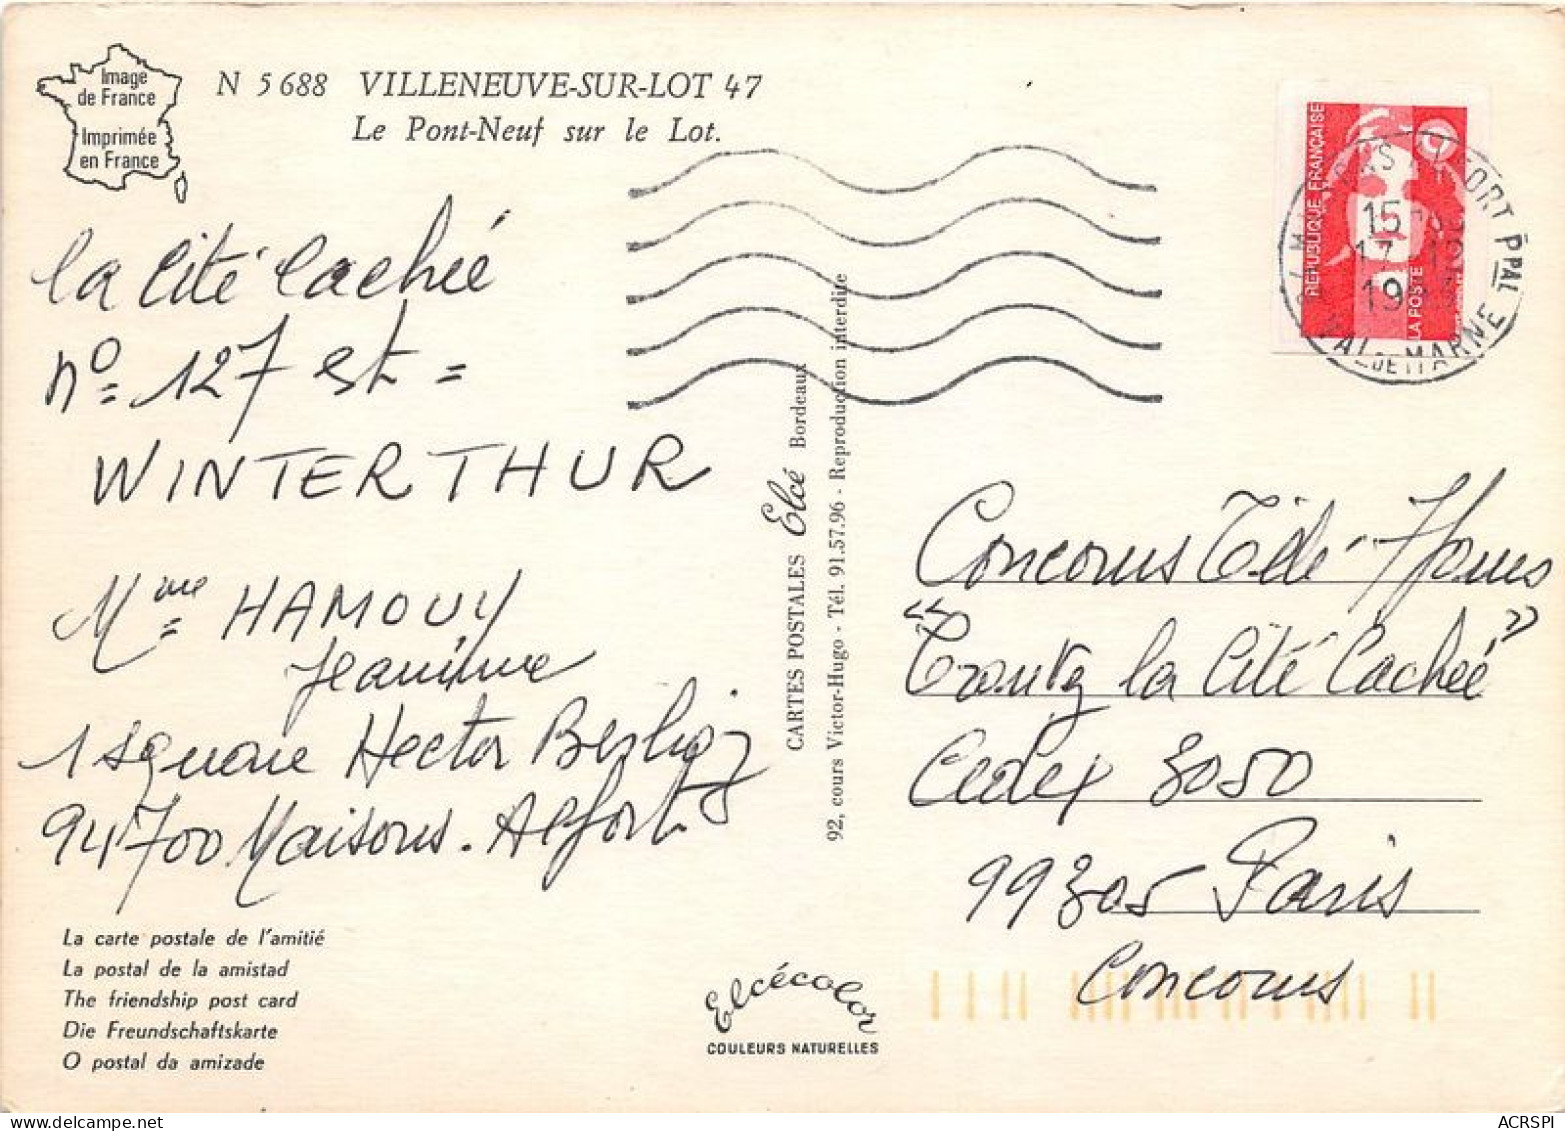 Image
de France
Imprimée
en France
N 5688 VILLENEUVE-SUR-LOT 47
Le Pont-Neuf sur le Lot.
la Cité Cachée
n° 127 est =
WINTERTHUR
Mme HAMOUY
Jeanine
1 square Hector Berlioz
94700 Maisons-Alfort
La carte postale de l'amitié
La postal de la amistad
The friendship post card
Die Freundschaftskarte
O postal da amizade
CARTES POSTALES Elcé Bordeaux
92, cours Victor-Hugo - Tél. 91.57.96 - Reproduction interdite
Elcécolor
COULEURS NATURELLES
REPUBLIQUE FRANÇAISE
LA POSTE
94 MAISONS ALFORT PPAL
15
17 12
19
VAL DE MARNE
Concours Télé 7 Jours
"Trouvez la Cité Cachée"
Cedex 3050
99305 Paris
Concours
ACRSPI